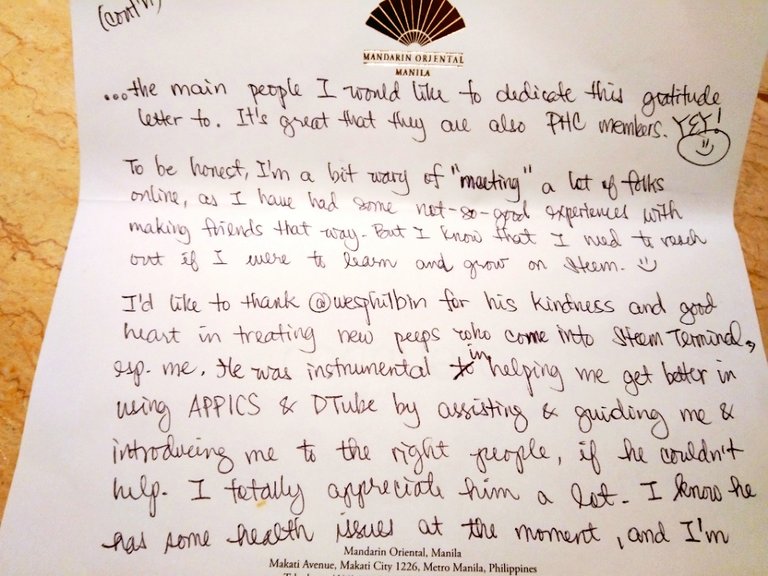 (cont'n)
MANDARIN ORIENTAL
MANILA
...the main people I would like to dedicate this gratitude
letter to. It's great that they are also PHC members. YEY!
To be honest, I'm a bit wary of "meeting" a lot of folks
online, as I have had some not-so-good experiences with
making friends that way. But I know that I need to reach
out if I were to learn and grow on Steem.
I'd like to thank @wesphilbin for his kindness and good
heart in treating new peeps who come into Steem Terminal,
esp. me. He was instrumental in helping me get better in
using APPICS & DTube by assisting & guiding me &
introducing me to the right people, if he couldn't
help. I totally appreciate him a lot. I know he
has some health issues at the moment, and I'm
Mandarin Oriental, Manila
Makati Avenue, Makati City 1226, Metro Manila, Philippines